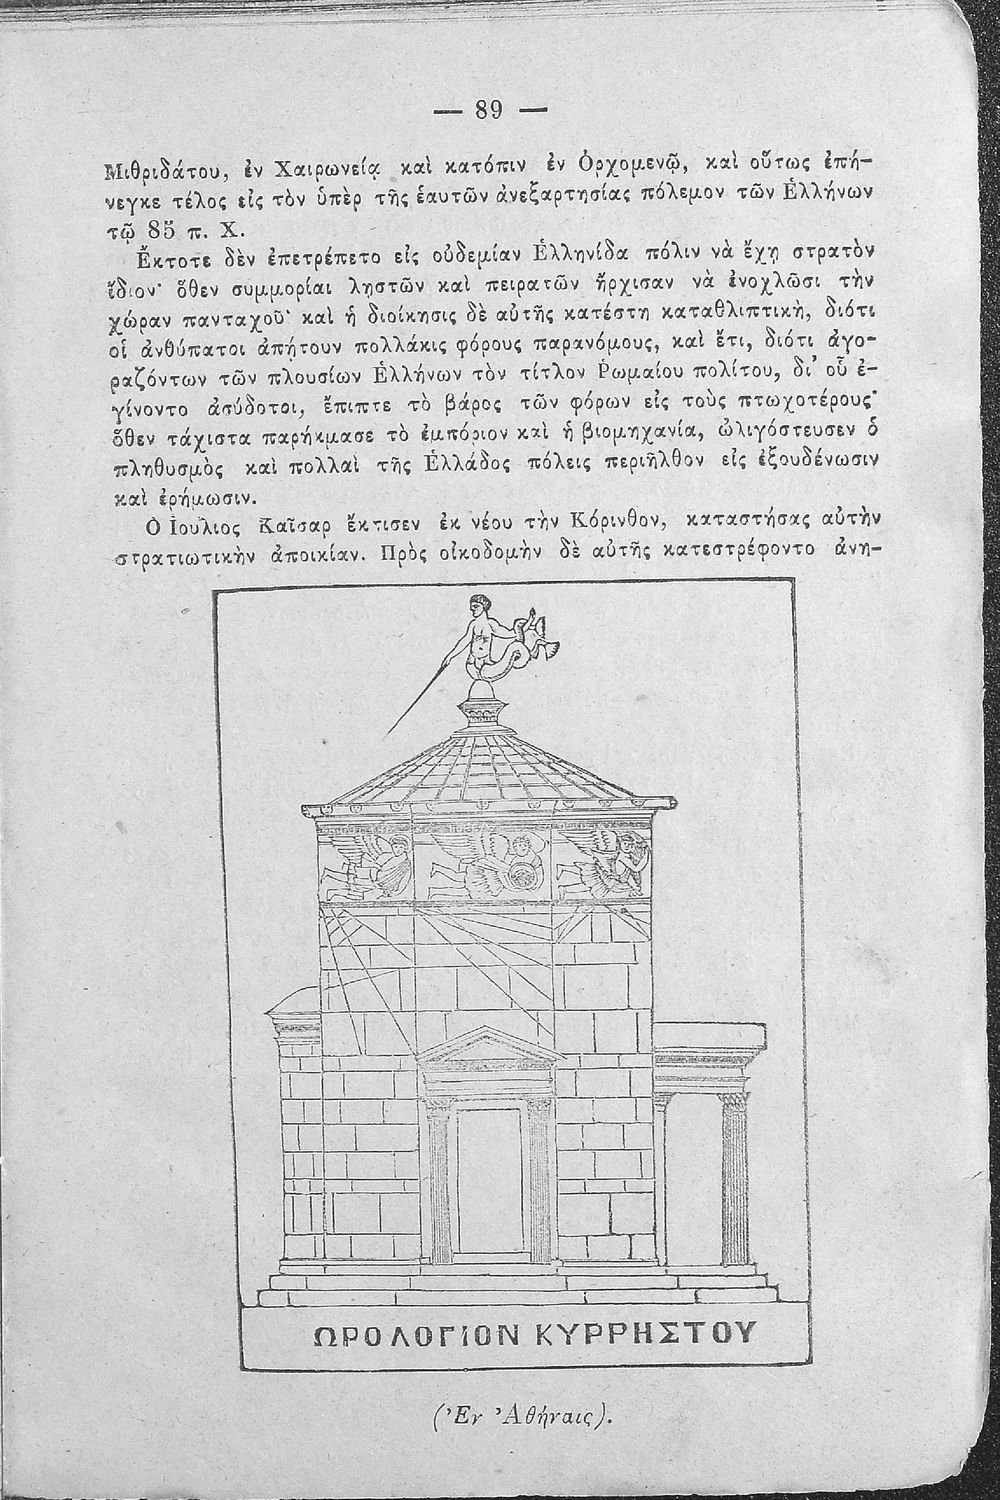 — 89 —
Μιθριδάτου, ἐν Χαιρωνείᾳ καὶ κατόπιν ἐν Ὀρχομενῷ, καὶ οὕτως ἐπή-
νεγκε τέλος εἰς τὸν ὑπὲρ τῆς ἑαυτῶν ἀνεξαρτησίας πόλεμον τῶν Ἑλλήνων
τῷ 85 π. Χ.
Ἔκτοτε δὲν ἐπετρέπετο εἰς οὐδεμίαν Ἑλληνίδα πόλιν νὰ ἔχῃ στρατὸν
ἴδιον· ὅθεν συμμορίαι λῃστῶν καὶ πειρατῶν ἤρχισαν νὰ ἐνοχλῶσι τὴν
χώραν πανταχοῦ· καὶ ἡ διοίκησις δὲ αὐτῆς κατέστη καταθλιπτικὴ, διότι
οἱ ἀνθύπατοι ἀπῄτουν πολλάκις φόρους παρανόμους, καὶ ἔτι, διότι ἀγο-
ραζόντων τῶν πλουσίων Ἑλλήνων τὸν τίτλον Ῥωμαίου πολίτου, δι’ οὗ ἐ-
γίνοντο ἀσύδοτοι, ἔπιπτε τὸ βάρος τῶν φόρων εἰς τοὺς πτωχοτέρους·
ὅθεν τάχιστα παρήκμασε τὸ ἐμπόριον καὶ ἡ βιομηχανία, ὠλιγόστευσεν ὁ
πληθυσμὸς καὶ πολλαὶ τῆς Ἑλλάδος πόλεις περιῆλθον εἰς ἐξουδένωσιν
καὶ ἐρήμωσιν.
Ὁ Ἰούλιος Καῖσαρ ἔκτισεν ἐκ νέου τὴν Κόρινθον, καταστήσας αὐτὴν
στρατιωτικὴν ἀποικίαν. Πρὸς οἰκοδομὴν δὲ αὐτῆς κατεστρέφοντο ἀνη-
ΩΡΟΛΟΓΙΟΝ ΚΥΡΡΗΣΤΟΥ
(Ἐν Ἀθήναις).